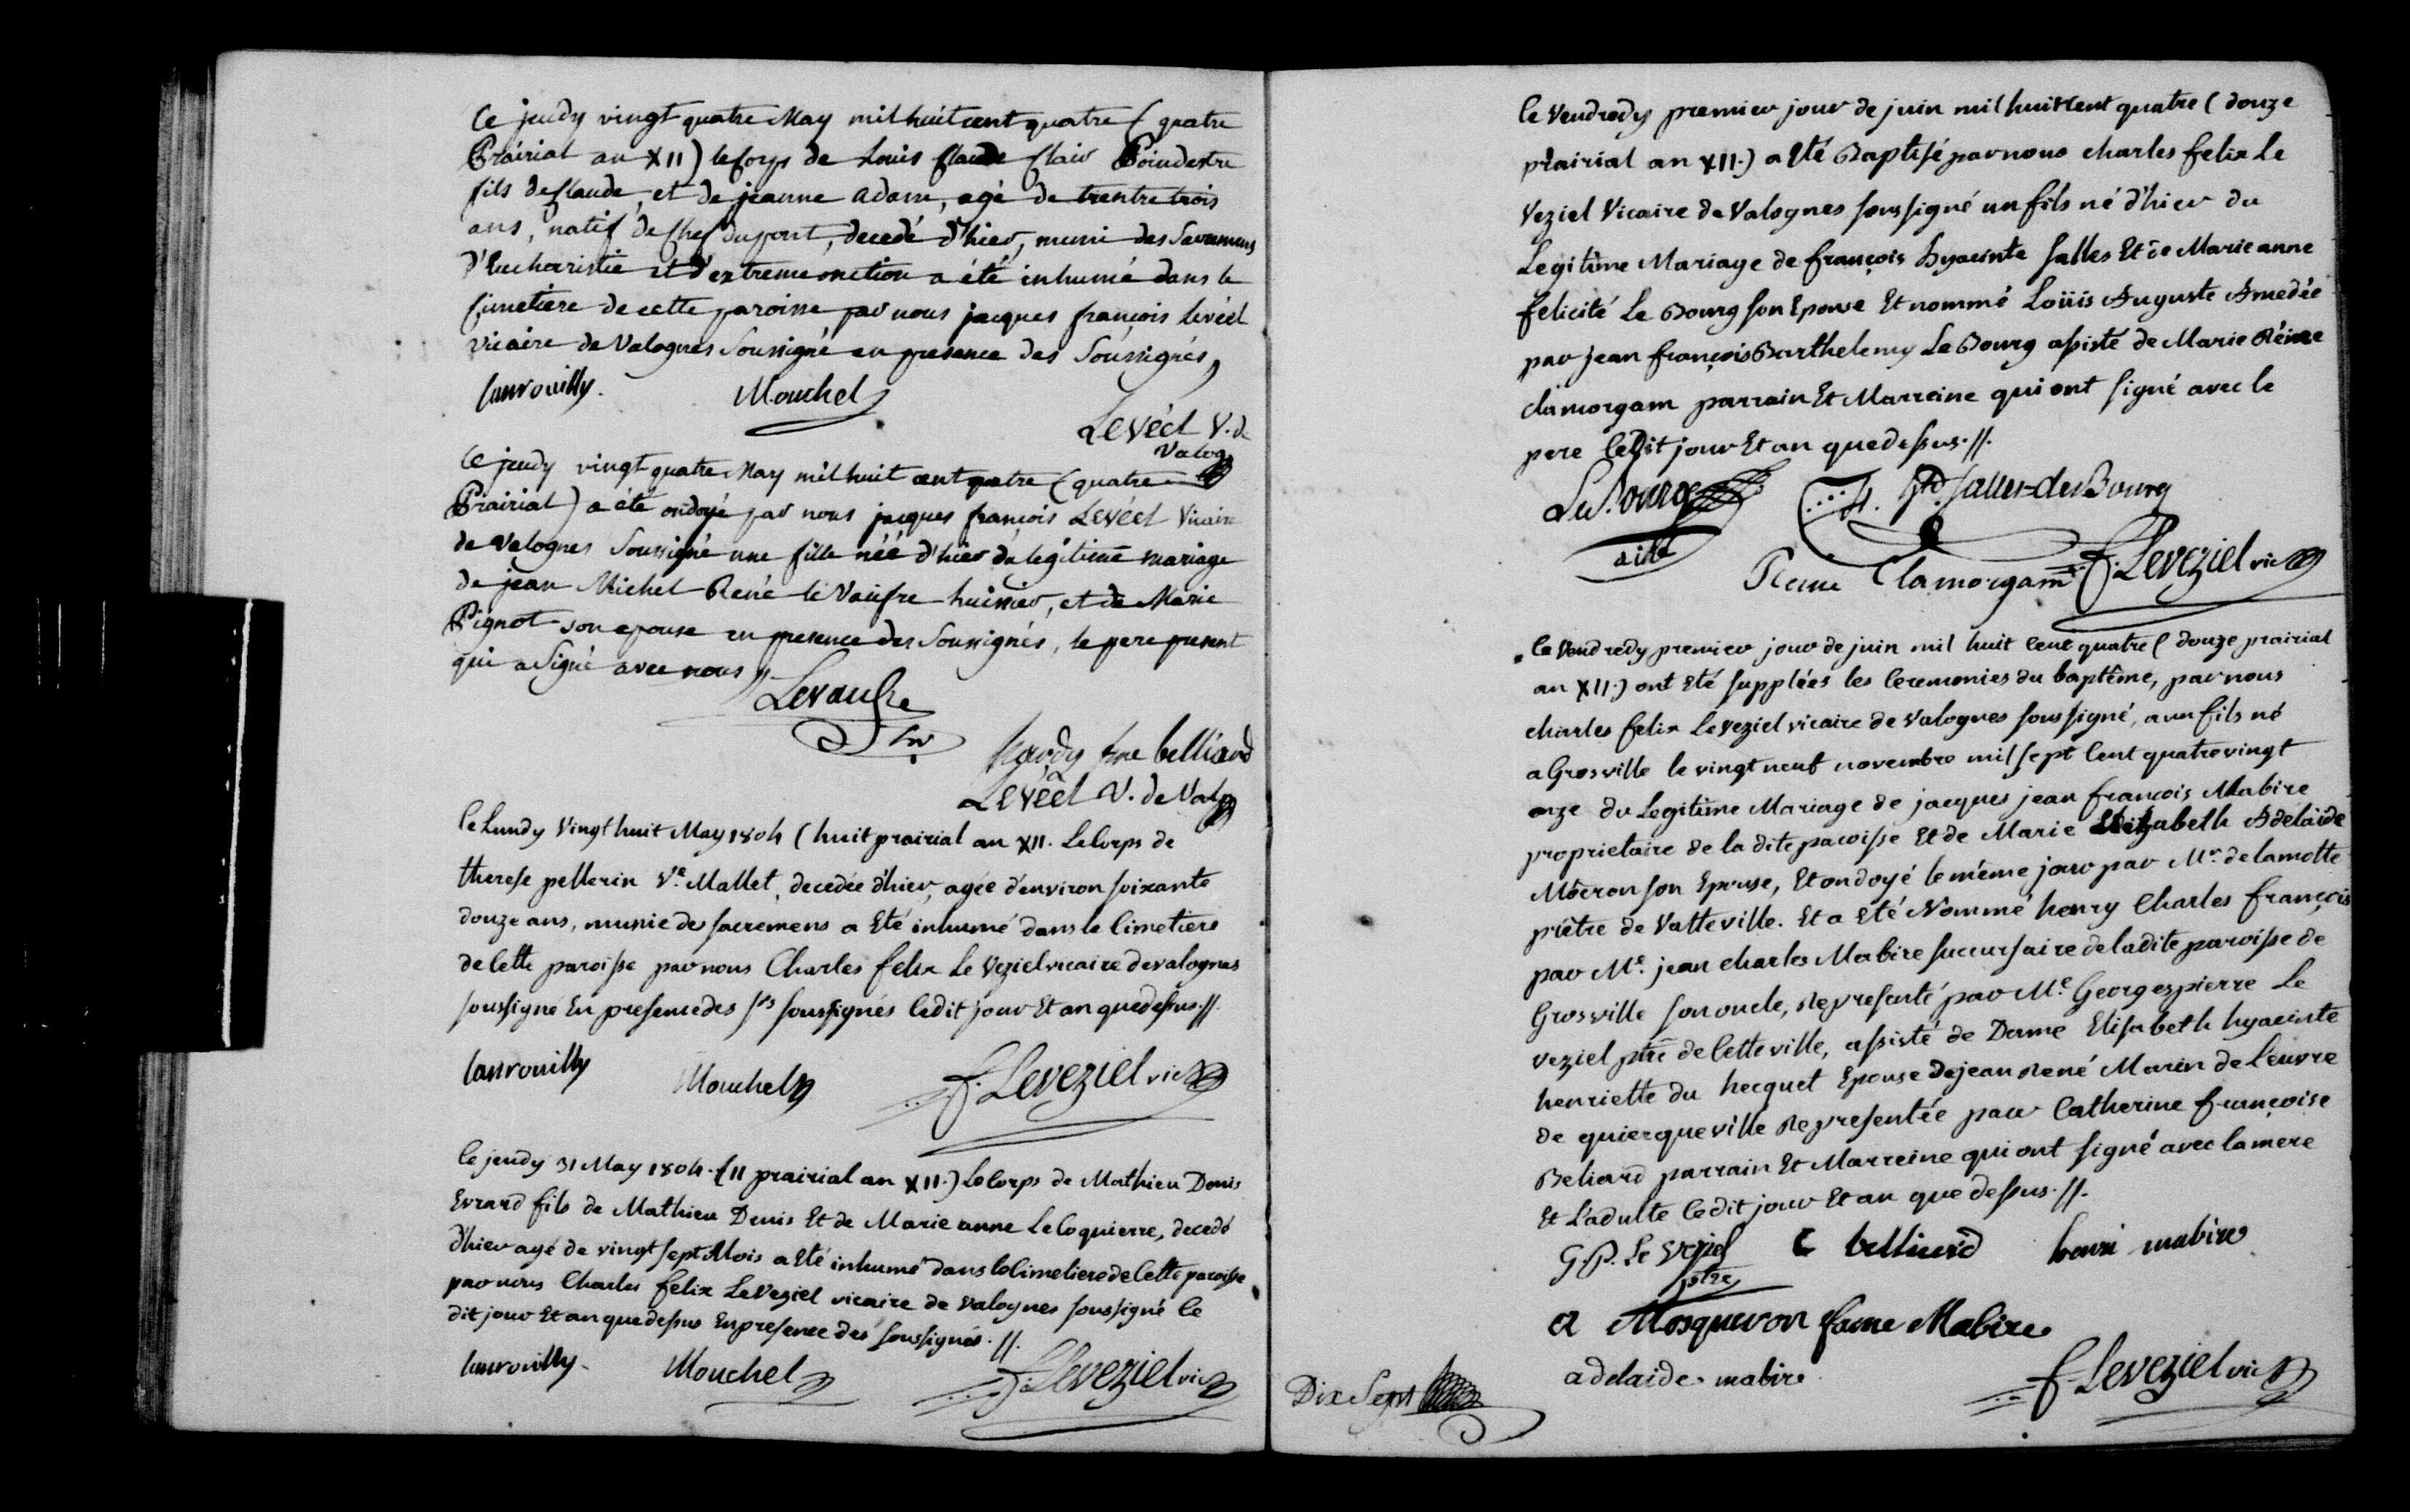 Ce jeudy vingt quatre May mil huit cent quatre (quatre
Prairial an XII) le Corps de Louis Claude Clair Poindestre
fils de Claude, et de jeanne adam, agé de trentre trois
ans, natif de Chef du pont, decedé d'hier, muni des Sacremens
d'Eucharistie et d'extreme onction a été inhumé dans le
Cimetiere de cette paroisse par nous jacques françois Levéel
vicaire de Valognes Soussigné en presence des Soussignés,
Mouchel
Levéel V. de
Valog
Ce jeudy vingt quatre May mil huit cent quatre (quatre
Prairial) a été ondoyé par nous jacques françois Levéel Vicaire
de Valognes Soussigné une fille néé d'hier du legitime mariage
de jean Michel René le Vaufre huissier, et de Marie
Pignot son epouse en presence des Soussignés, le pere present
qui a Signé avec nous //
Levaufre
hardy fme belliard
Levéel V. de Val
Ce Lundy Vingt huit May 1804 (huit prairial an XII. Le Corps de
therese pellerin Ve. Mallet, decedée d'hier, agée d'environ soixante
douze ans, munie des sacremens a Eté inhumé dans le Cimetiere
de Cette paroisse par nous Charles felix Le Veziel vicaire de valognes
soussigné En presence des srs soussignés Ledit jour Et an que dessus.//.
Mouchel
f. Leveziel vic
Ce jeudy 31 May 1804. (11 prairial an XII.) Le Corps de Mathieu Denis
Evrard fils de Mathieu Denis Et de Marie anne Le Coquierre, decedé
d'hier agé de vingt sept Mois a Eté inhumé dans le Cimetiere de Cette paroisse
par nous Charles felix Le Veziel vicaire de valognes soussigné Le
dit jour Et an que dessus En presence des soussignés.//.
Mouchel
f. Leveziel vic
Ce Vendredy premier jour de juin mil huit Cent quatre (douze
prairial an XII.) a Eté Baptisé par nous charles felix Le
Veziel Vicaire de Valognes soussigné un fils né d'hier du
Legitime Mariage de françois hyacinte salles Et de Marie anne
felicité Le Bourg son Epouse Et nommé Loüis Auguste Amedée
par jean françois Barthelemy Le Bourg assisté de Marie Réine
clamorgam parrain Et Marreine qui ont signé avec le
pere Ledit jour Et an que dessus.//.
LeBourg
Reine Clamorgam
f. Leveziel vic
Ce Vendredy premier jour de juin mil huit Cent quatre (douze prairial
an XII.) ont Eté supplées les Ceremonies du baptême, par nous
charles felix Leveziel vicaire de valognes soussigné, a un fils né
a Grosville le vingt neuf novembre mil sept Cent quatre vingt
onze du Legitime Mariage de jacques jean françois Mabire
proprietaire de la dite paroisse Et de Marie Elizabeth Adelaide
Moceron son Epouse, Et ondoyé le même jour par Mr. de lamotte
prêtre de Vatteville. Et a Eté Nommé henry Charles françois
par Me. jean charles Mabire succursaire de ladite paroisse de
Grosville son oncle, Representé par Me. Georges pierre Le
veziel ptre de Cette ville, assisté de Dame Elisabeth hyacinte
henriette du hecquet Epouse de jean René Marin de L'euvre
de quierqueville Representée par Catherine françoise
Beliard parrain Et Marreine qui ont signé avec la mere
Et L'adulte Ledit jour Et an que dessus.//.
G. P. Le veziel
ptre
C belliard
henri mabire
a Mosqueron fame Mabire
adelaide mabire
f. Leveziel vic
Dix Sept